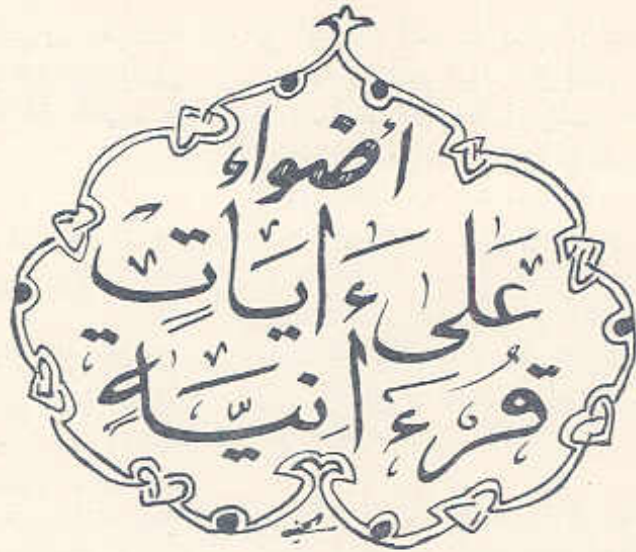 أضواء
عَلىٰ ءَايَاتٍ
قُرءَانِيَّةٍ